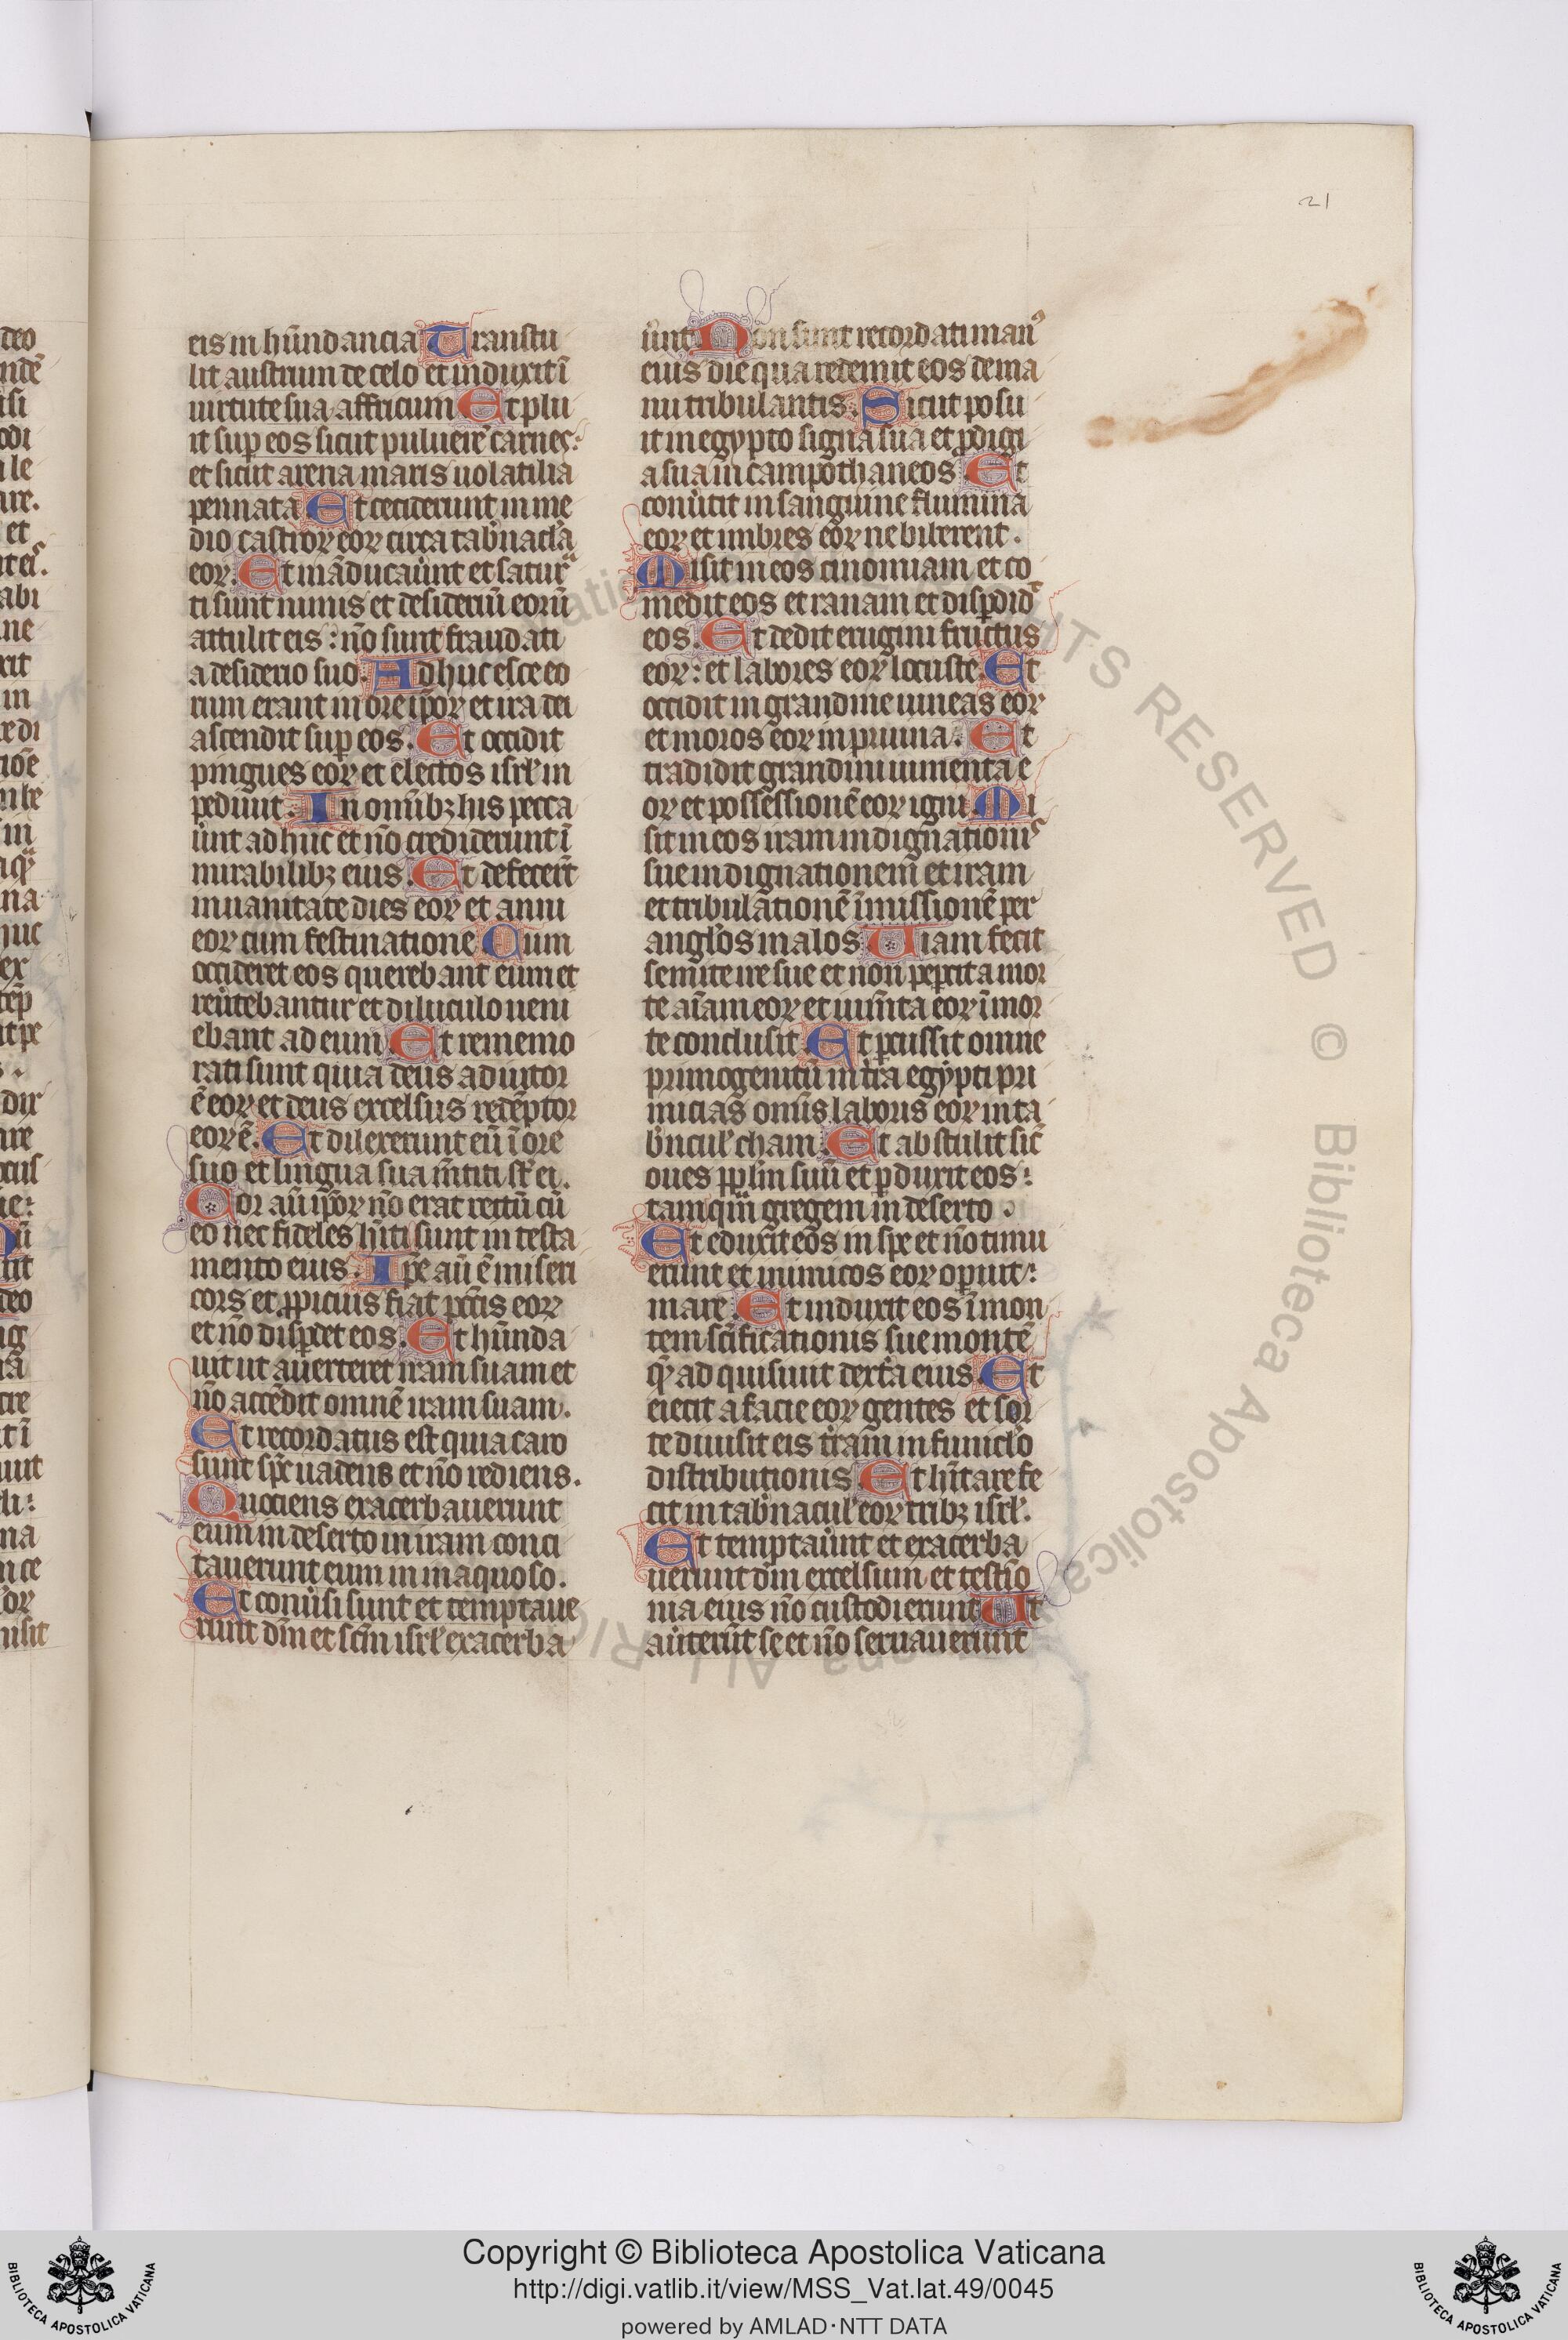 21
eis in hūndancia Transtu
lit austrum de celo et induxit ī
uirtute sua affricum Et plu
it sup eos sicut puluerē carnes:
et sicut arena maris uolatilia
pennata Et ceciderunt in me
dio castrorꝝ eorꝝ circa tabn̄acl̓a
eorꝝ. Et māducaūnt et satur
ti sunt nimis et desideriū eorū
attulit eis: nō sunt fraudati
a desiderio suo. Adhuc esce eo
rum erant in ore ip̄orꝝ et ira dei
ascendit sup eos. Et occidit
pingues eorꝝ et electos isrl̓ in
pediuit. In omībꝫ his pecca
ūnt adhuc et nō crediderunt ī
mirabilibꝫ eius. Et defecert̄
in uanitate dies eorꝝ et anni
eorꝝ cum festinatione Cum
occideret eos querebant eum et
reūtebantur et diluculo ueni
ebant ad eum Et rememo
rati sunt quia deus adiutor
ē eorꝝ et deus excelsus redēptor
eorꝝ ē. Et dilexerunt eū ī ore
suo et lingua sua m̄titi st̄ ei.
Cor aū ip̄orꝝ nō erat rectū cū
eo nec fideles hīti sunt in testa
mento eius. Ip̄e aū ē miseri
cors et ꝓpicius fiat pctīs eorꝝ
et nō dispdet eos. Et hūnda
uit ut auerteret iram suam et
nō accēdit omnē iram suam.
Et recordatus est quia caro
sunt sp̄c uadens et nō rediens.
Quociens exacerbauerunt
eum in deserto in iram conci
tauerunt eum in inaquoso.
Et conūsi sunt et temptaue
runt dm̄ et scm̄ isrl̓ exacerba
ūnt Non sunt recordati man
eius die qua redemit eos de ma
nu tribulantis. Sicut posu
it in egypto signa sua et ꝓdigi
a sua in campo thaneos Et
conūtit in sanguine flumina
eorꝝ et imbres eorꝝ ne biberent.
Misit in eos cinomiam et co
medit eos et ranam et dispdid
eos. Et dedit erugini fructus
eorꝝ: et labores eorꝝ locuste. Et
occidit in grandine uineas eorꝝ
et moros eorꝝ in pruina. Et
tradidit grandini iumenta e
orꝝ et possessionē eorꝝ igni Mi
sit in eos iram indignationis
sue indignationem̄ et iram
et tribulationē īmissionē per
angl̓os malos Uiam fecit
semite ire sue et non pepcit a mor
te aīam eorꝝ et ium̄ta eorꝝ ī mor
te conclusit Et pcussit omne
primogenitū in tr̄a egypti pri
micias om̄is laboris eorꝝ in ta
bn̄cul̓ cham. Et abstulit sic̄
oues ppl̄m suū et pduxit eos:
tamqm̄ gregem in deserto.
Et eduxit eos in spe et nō timu
erunt et inimicos eorꝝ opuit:
mare. Et induxit eos ī mon
tem sc̄ificationis sue montē
qē adquisiuit dext̄a eius Et
eiecit a facie eorꝝ gentes et sor
te diuisit eis tr̄am in funicl̓o
distributionis Et hīt̄are fe
cit in tabn̄acul̓ eorꝝ tribꝫ isrl̓.
Et temptaūnt et exacerba
uerunt dm̄ excelsum et testīo
nia eius nō custodierunt Et
aūterūt se et nō seruauerunt
Copyright © Biblioteca Apostolica Vaticana
http://digi.vatlib.it/view/MSS_Vat.lat.49/0045
powered by AMLAD·NTT DATA
BIBLIOTECA APOSTOLICA VATICANA
BIBLIOTECA APOSTOLICA VATICANA